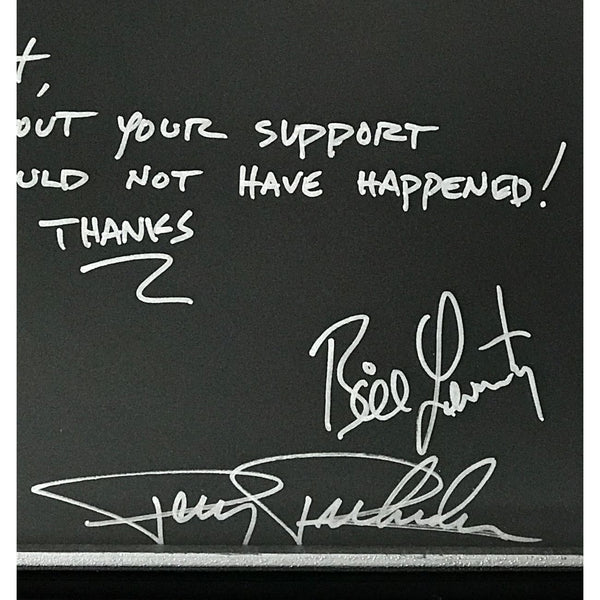 t,
OUT YOUR SUPPORT
ULD NOT HAVE HAPPENED!
THANKS
Bill